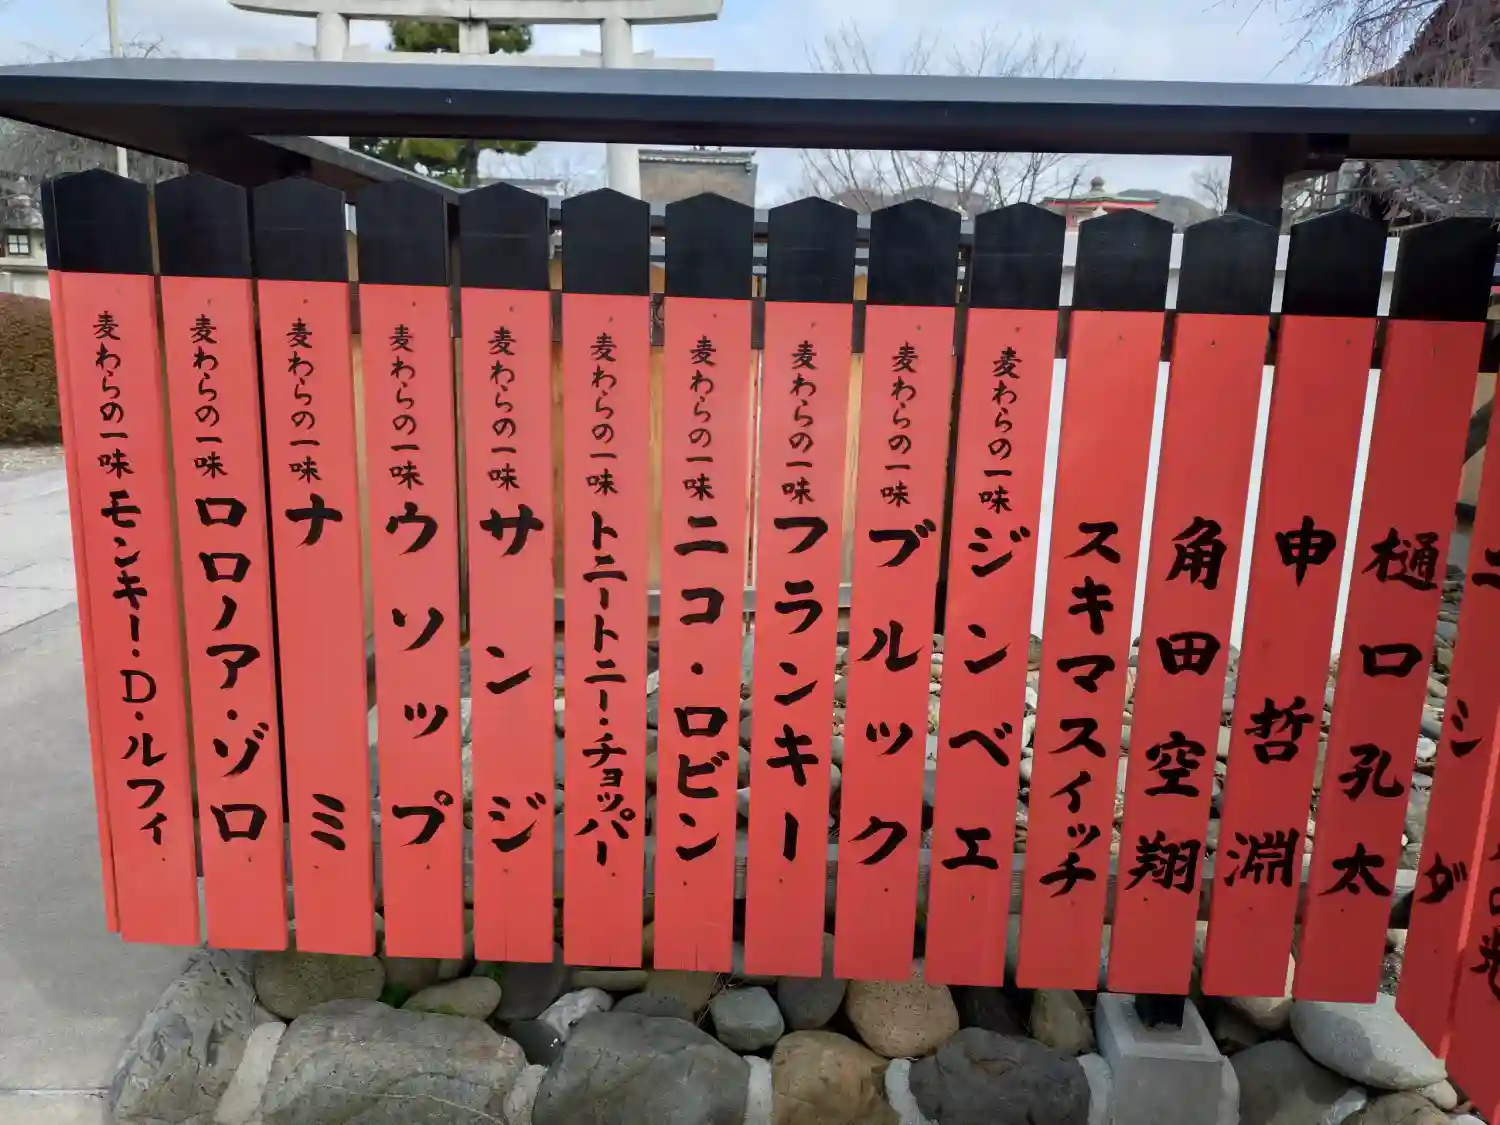 麦わらの一味 モンキー・D・ルフィ
麦わらの一味 ロロノア・ゾロ
麦わらの一味 ナミ
麦わらの一味 ウソップ
麦わらの一味 サンジ
麦わらの一味 トニートニー・チョッパー
麦わらの一味 ニコ・ロビン
麦わらの一味 フランキー
麦わらの一味 ブルック
麦わらの一味 ジンベエ
スキマスイッチ
角田空翔
申哲淵
樋口孔太
ニシダ